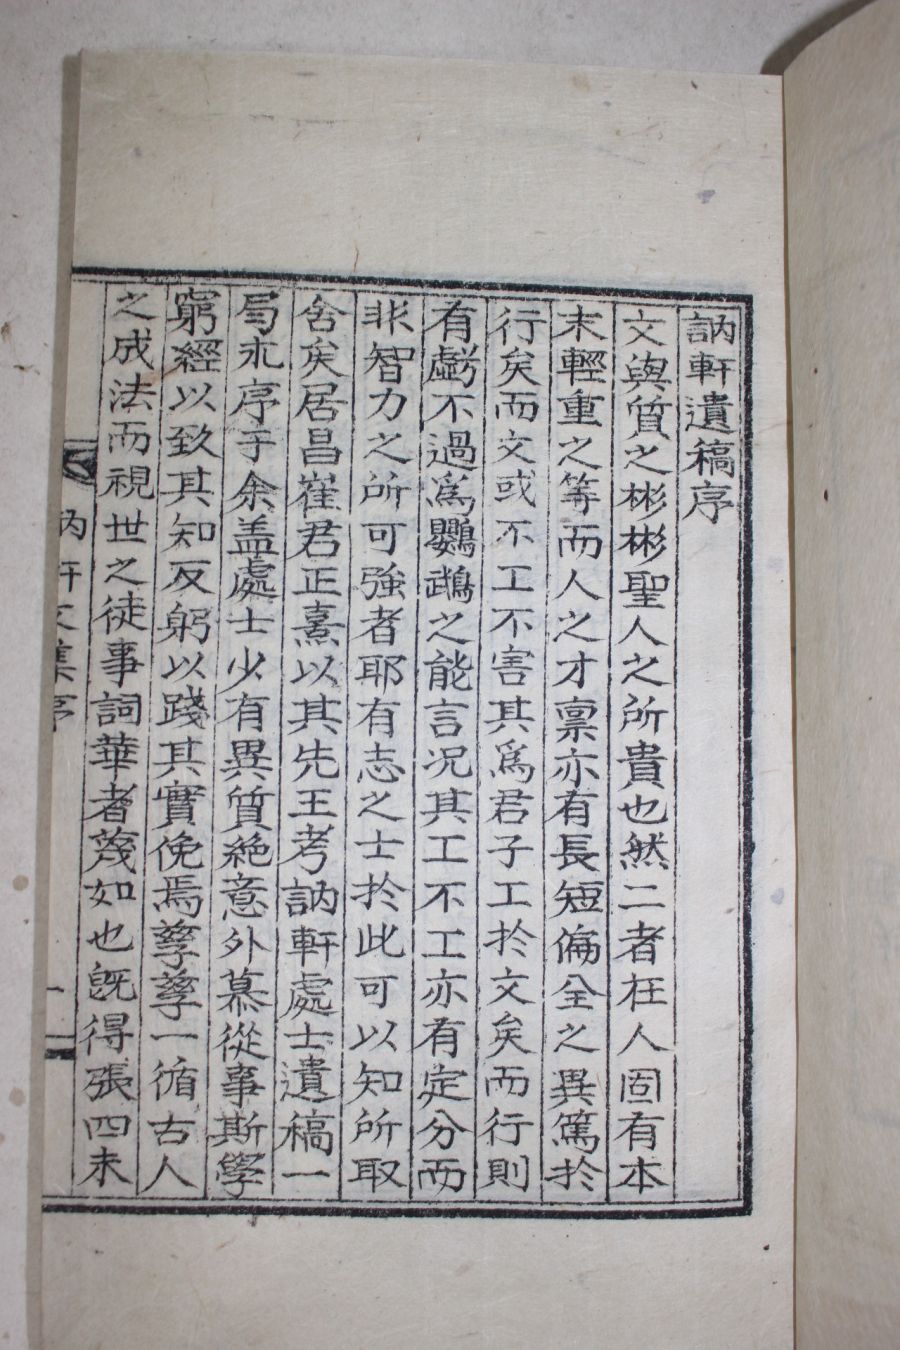 訥軒遺稿序
文與質之彬彬聖人之所貴也然二者在人固有本
末輕重之等而人之才稟亦有長短偏全之異篤於
行矣而文或不工不害其爲君子工於文矣而行則
有虧不過爲鸚鵡之能言况其工不工亦有定分而
非智力之所可強者耶有志之士於此可以知所取
舍矣居昌崔君正熹以其先王考訥軒處士遺稿一
局求序于余盖處士少有異質絶意外慕從事斯學
窮經以致其知反躬以踐其實俛焉孶孶一循古人
之成法而視世之徒事詞華者蔑如也旣得張四未
訥軒文集序
一